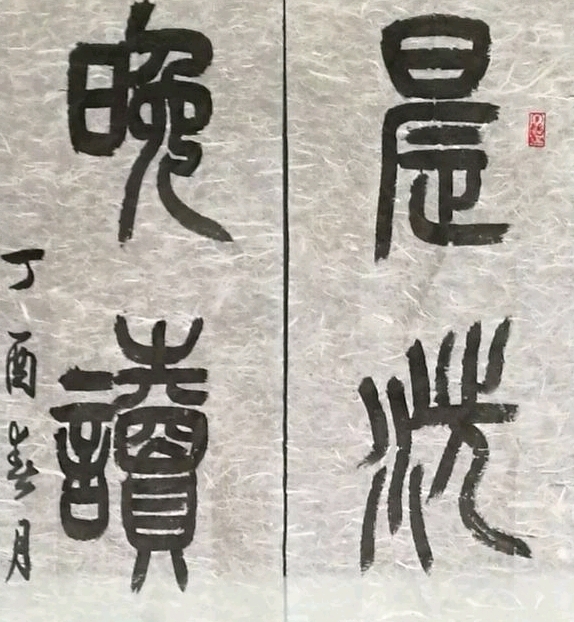 晨洗
晚讀
丁酉春月